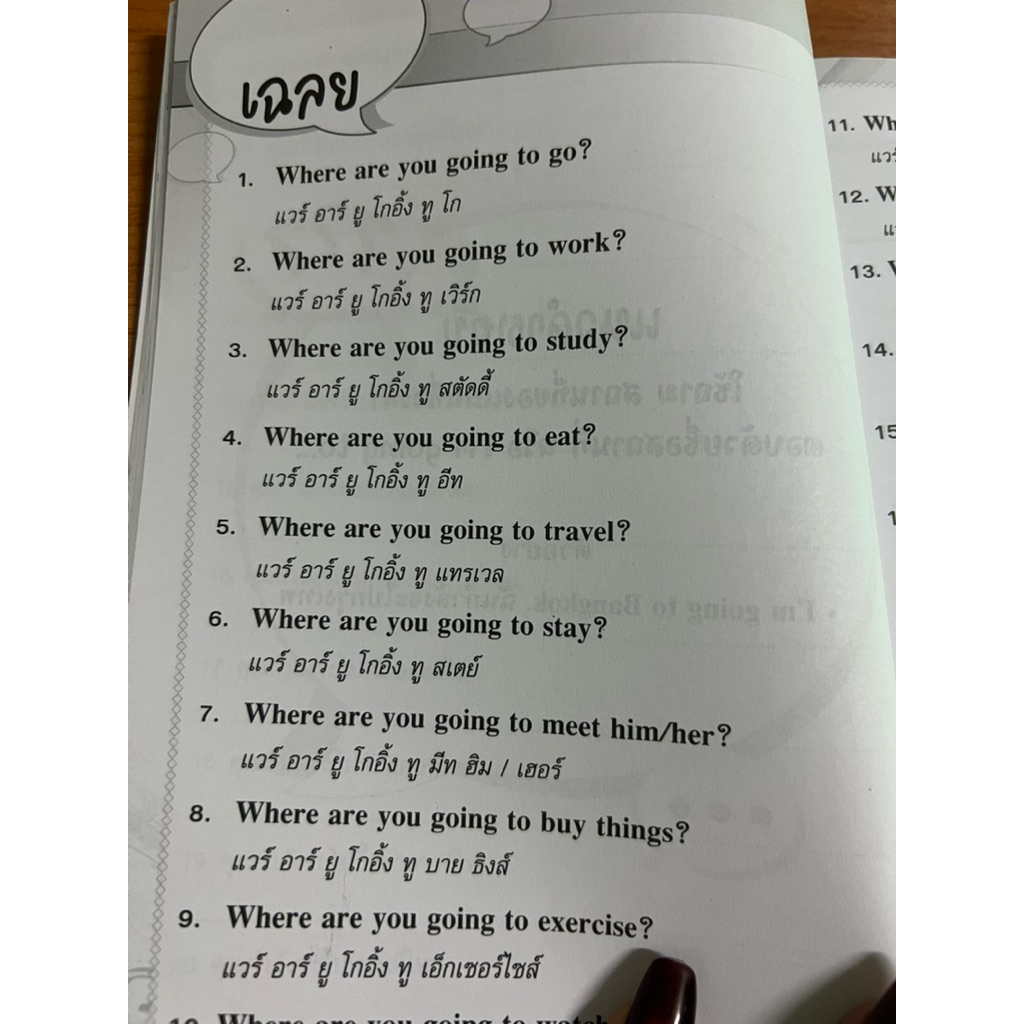 เฉลย
1. Where are you going to go?
แวร์ อาร์ ยู โกอิ้ง ทู โก
2. Where are you going to work?
แวร์ อาร์ ยู โกอิ้ง ทู เวิร์ก
3. Where are you going to study?
แวร์ อาร์ ยู โกอิ้ง ทู สตัดดี้
4. Where are you going to eat?
แวร์ อาร์ ยู โกอิ้ง ทู อีท
5. Where are you going to travel?
แวร์ อาร์ ยู โกอิ้ง ทู แทรเวล
6. Where are you going to stay?
แวร์ อาร์ ยู โกอิ้ง ทู สเตย์
7. Where are you going to meet him/her?
แวร์ อาร์ ยู โกอิ้ง ทู มีท ฮิม / เฮอร์
8. Where are you going to buy things?
แวร์ อาร์ ยู โกอิ้ง ทู บาย ธิงส์
9. Where are you going to exercise?
แวร์ อาร์ ยู โกอิ้ง ทู เอ็กเซอร์ไซส์
10. Where are you going to watch
11. Wh
แวร์
12. W
13.
14.
15